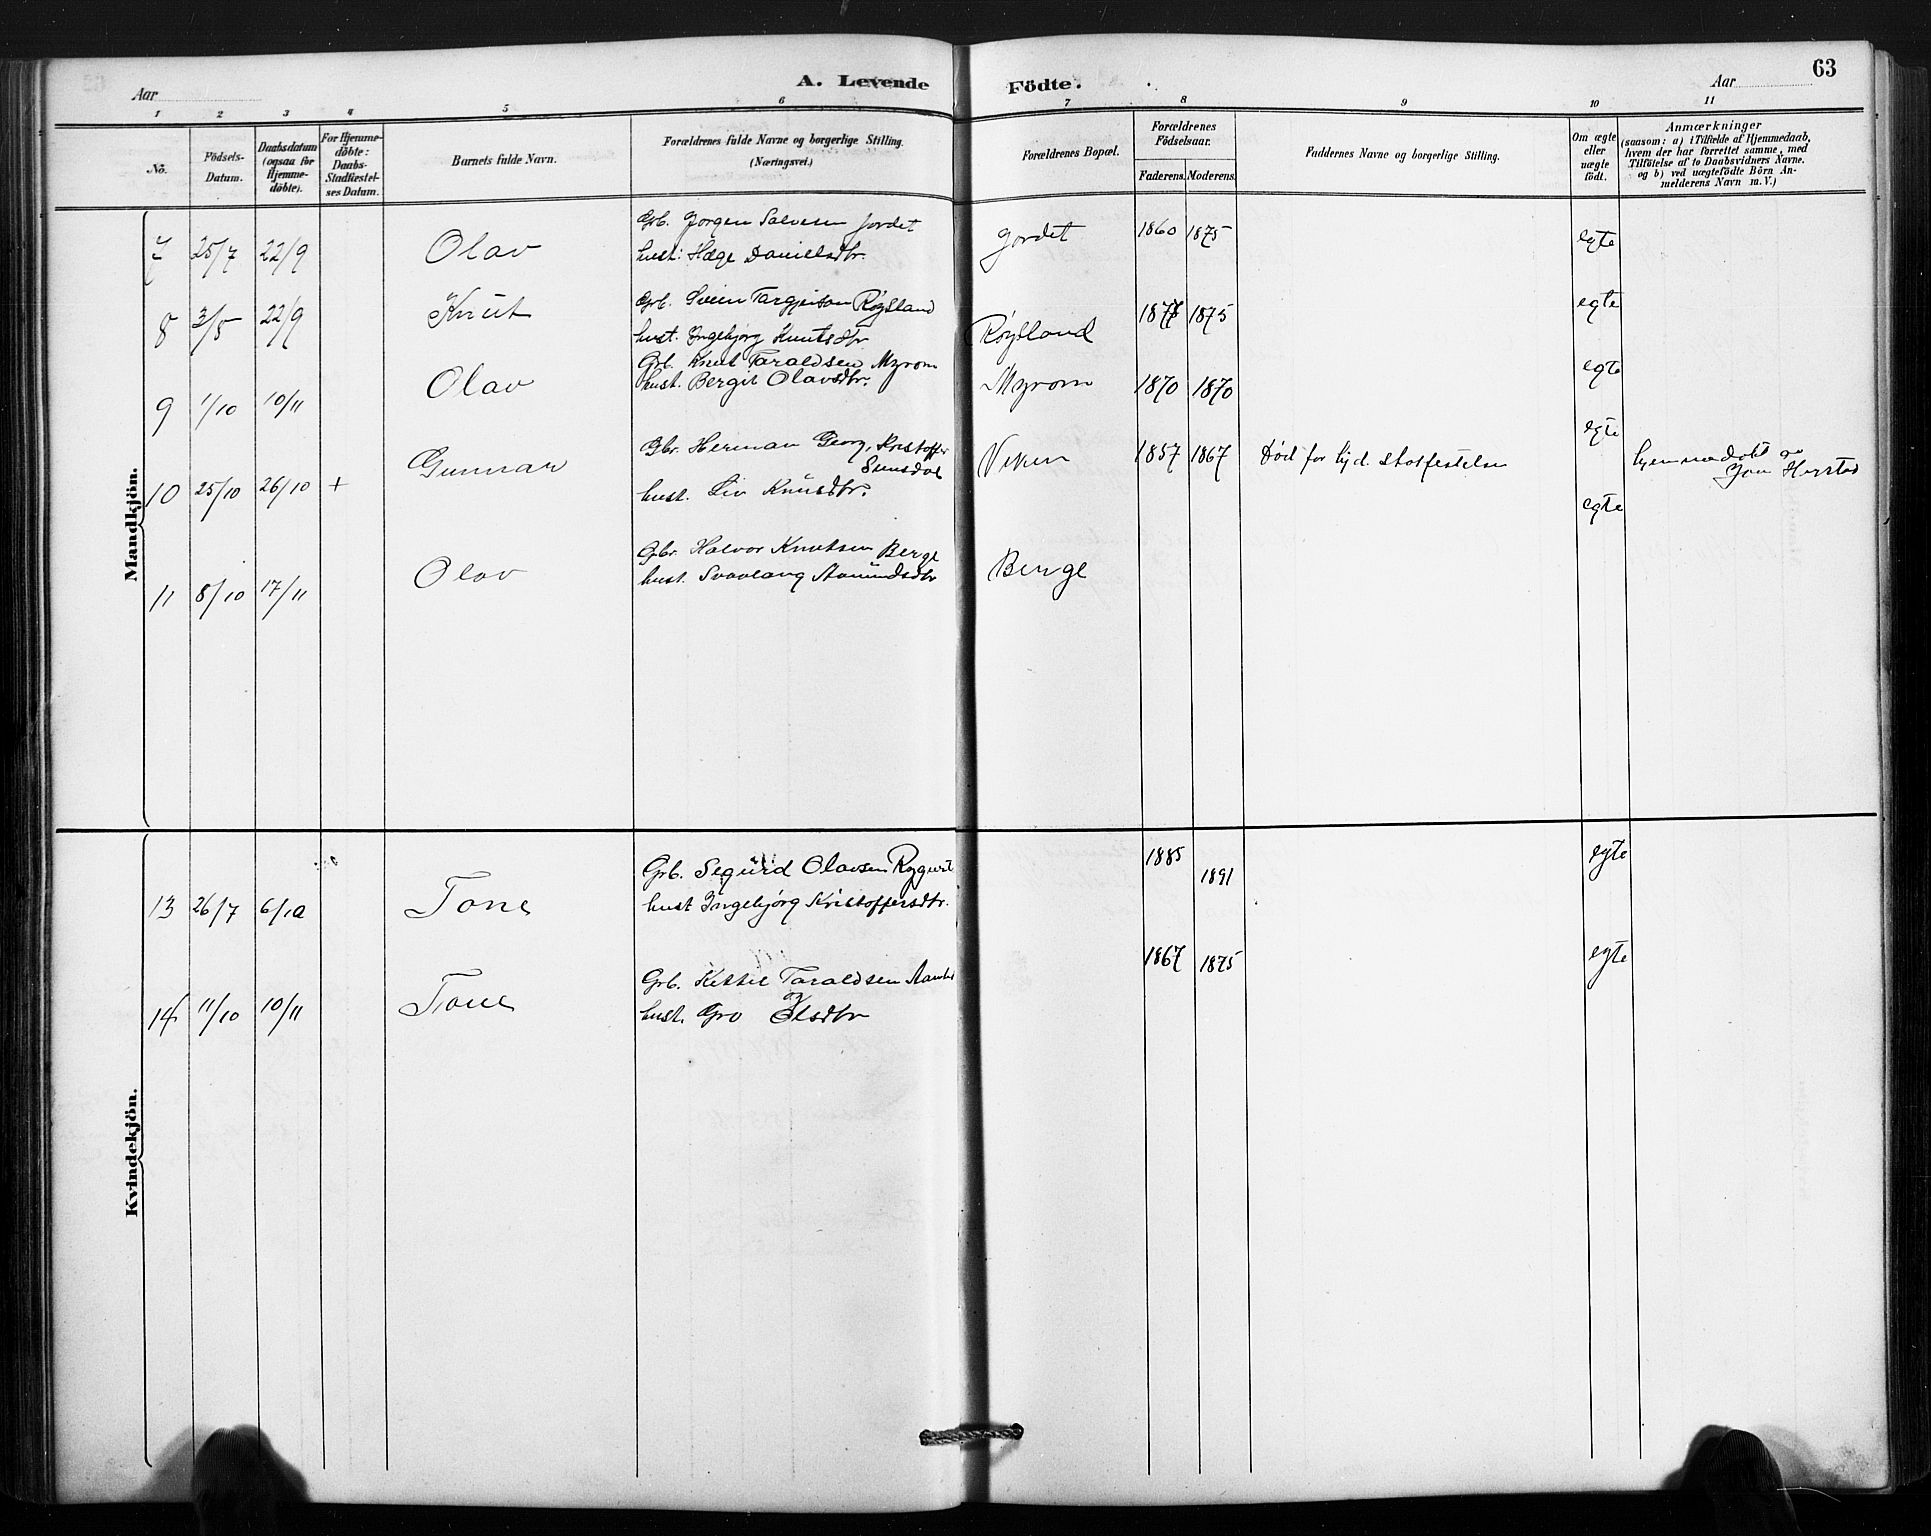 63
A. Levende Födte.
Aar
Aar
1 2 3 4 5 6 7 8 9 10 11
No.
Födsels-
Datum.
Daabsdatum
(ogsaa for
Hjemme-
döbte).
For Hjemme-
döbte:
Daabs-
Stadfæstel-
ses Datum.
Barnets fulde Navn.
Forældrenes fulde Navne og borgerlige Stilling.
(Næringsvei.)
Forældrenes Bopæl.
Forældrenes
Födselsaar.
Faderens. Moderens.
Faddernes Navne og borgerlige Stilling.
Om ægte
eller
uægte
födt.
Anmærkninger
(saasom: a) i Tilfælde af Hjemmedaab,
hvem der har forrettet samme, med
Tilföielse af to Daabsvidners Navne.
og b) ved uægtefödte Börn An-
melderens Navn m. V.)
Mandkjön.
7 25/7 22/9 Olav
Grb. Jorgen Salvesen Jordet
hust: Hæge Danielsdtr.
Jordet 1860 1875 egte
8 3/8 22/9 Knut
Grb. Svein Targjeison Røysland
hust. Ingebjørg Knutsdtr.
Røysland 1875 egte
9 1/10 10/11 Olav
Grb. Knut Taraldsen Myrom
hust. Bergit Olavsdtr.
Myrom 1870 1870 egte
10 25/10 26/10 + Gunnar
Gbr. Herman Georg Kristoffer
hust. Liv Knutsdtr.
Viken 1857 1867 Død for egte
hjemmedøbt av
11 8/10 17/11 Olav
Gbr. Halvor Knutsen Berge
hust. Svavlaug Aamundsdtr
Berge egte
Kvindekjön.
13 26/7 6/10 Tone
Grb. Segurd Olavsen
hust Ingebjørg Kristoffersdtr.
1885 1891 egte
14 11/10 10/11 Tone
Grb. Kettil Taraldsen
og
hust. Gro Olsdtr
1867 1875 egte